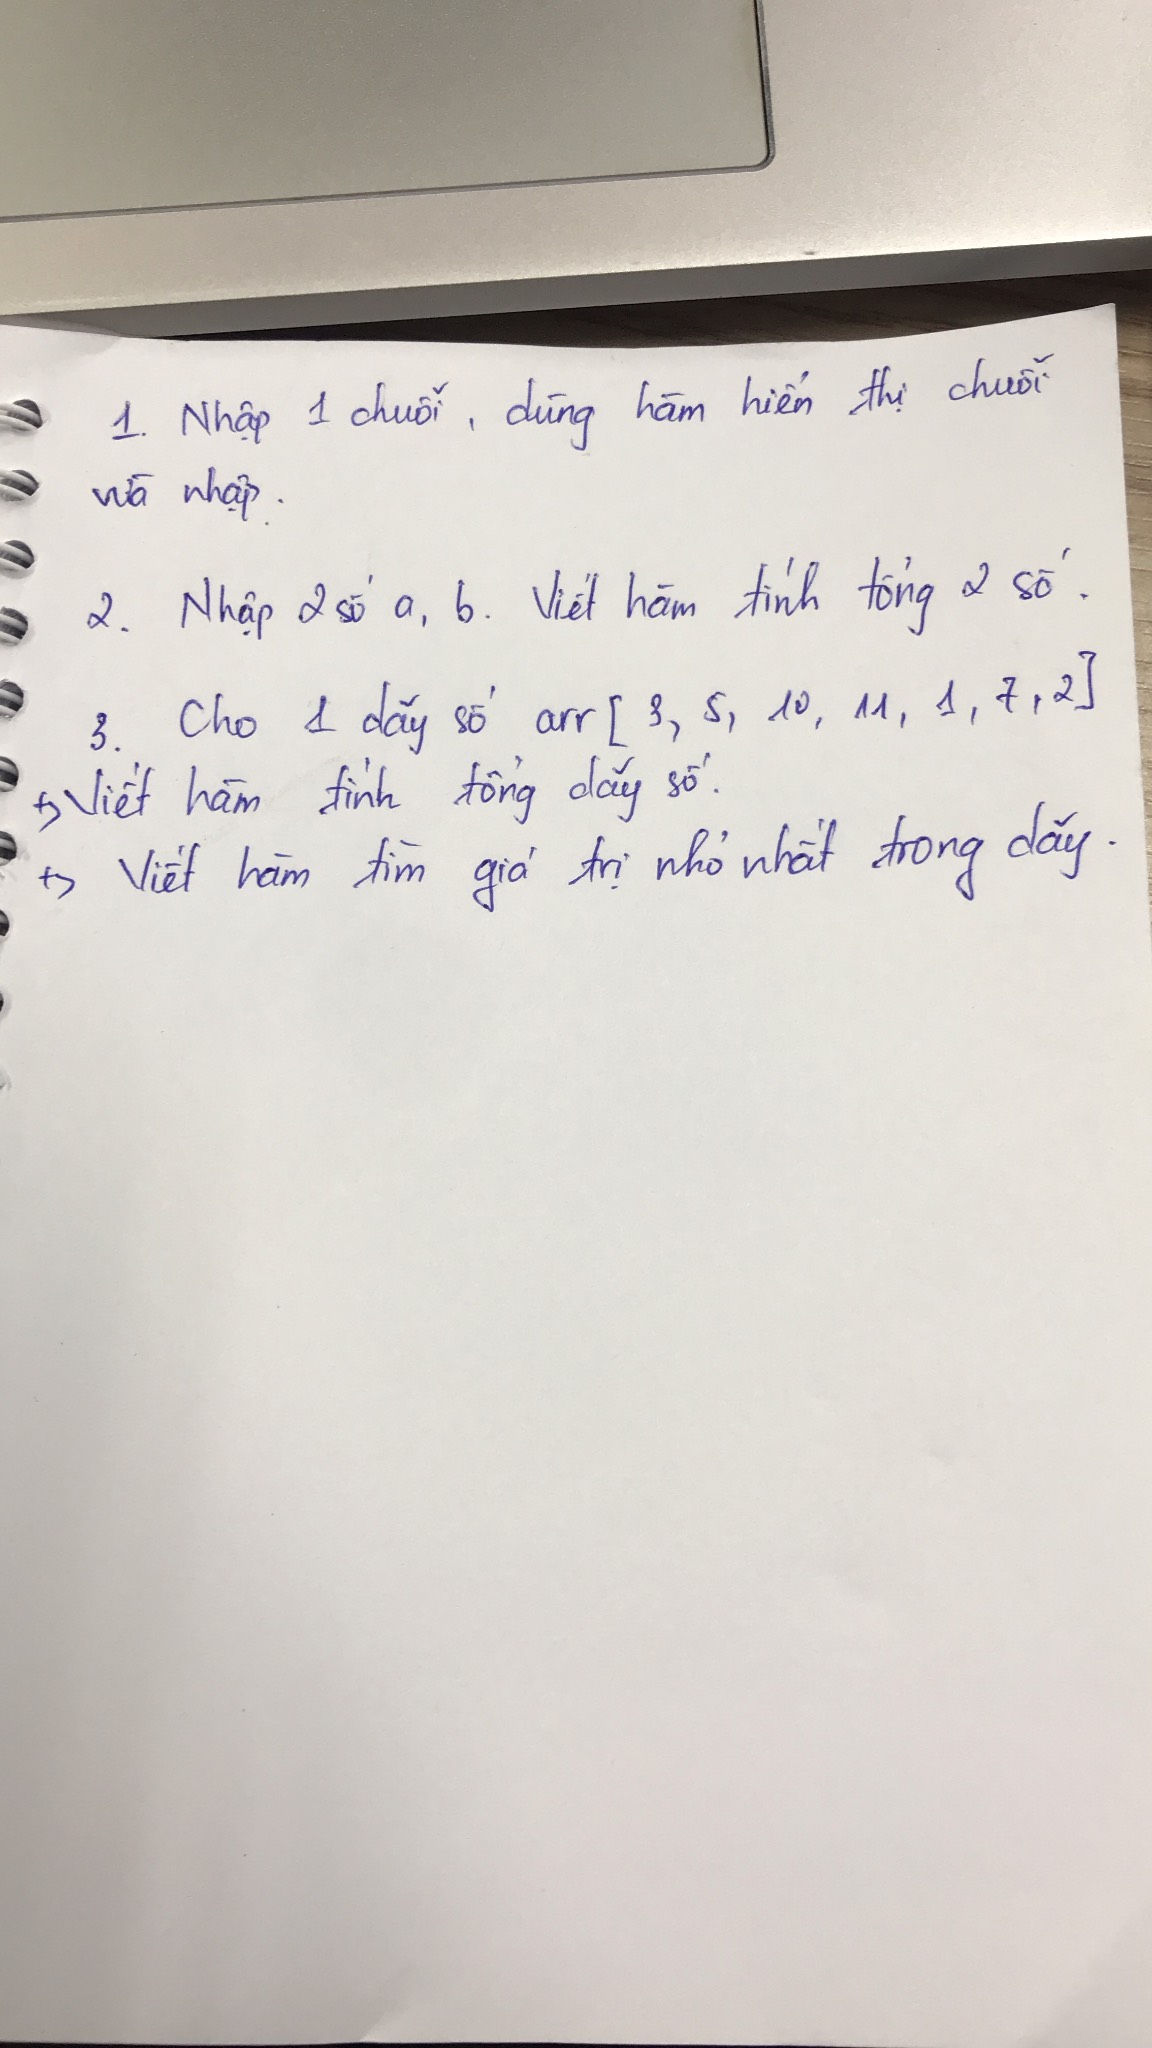 1. Nhập 1 chuỗi, dùng hàm hiển thị chuỗi
vừa nhập.
2. Nhập 2 số a, b. Viết hàm tính tổng 2 số.
3. Cho 1 dãy số arr [3, 5, 10, 11, 1, 7, 2]
↪ Viết hàm tính tổng dãy số.
↪ Viết hàm tìm giá trị nhỏ nhất trong dãy.